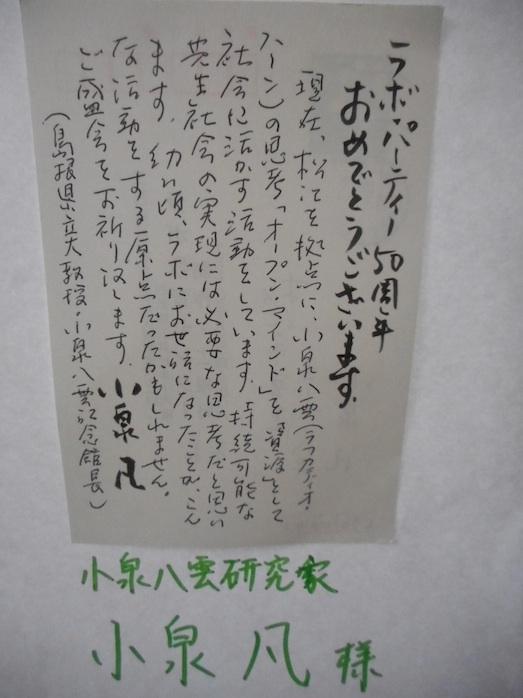 ラボ・パーティー50周年
おめでとうございます。
現在、松江を拠点に、小泉八雲(ラフカディオ・
ハーン)の思考「オープン・マインド」を資源として
社会に活かす活動をしています。持続可能な
共生社会の実現には必要な思考だと思い
ます。幼い頃、ラボにお世話になったことが、こん
な活動をする原点だったかもしれません。
ご盛会をお祈り致します。小泉凡
(島根県立大教授・小泉八雲記念館長)
小泉八雲研究家
小泉 凡 様